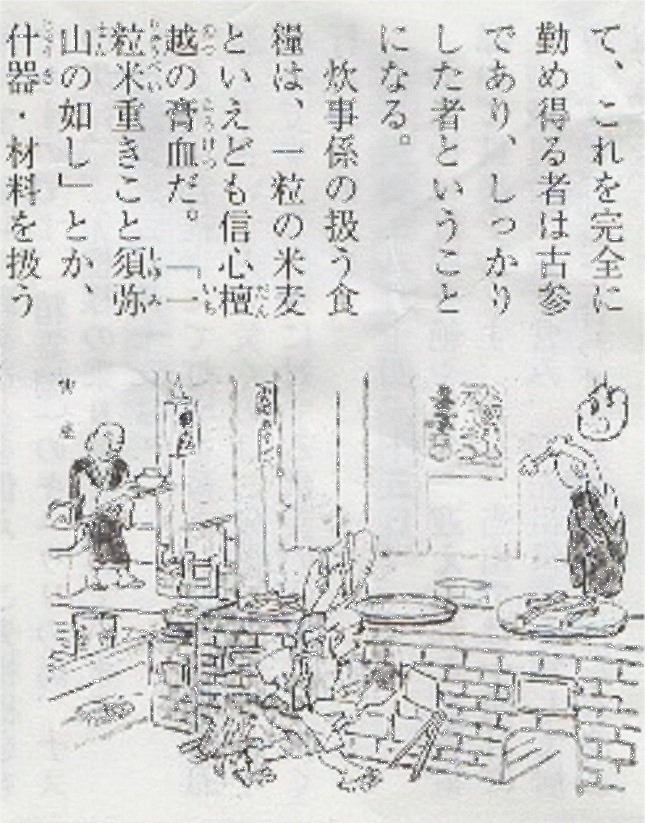 て、これを完全に
勤め得る者は古参
であり、しっかり
した者ということ
になる。
炊事係の扱う食
糧は、一粒の米麦
といえども信心檀
越の膏血だ。「一
粒米重きこと須弥
山の如し」とか、
什器・材料を扱う